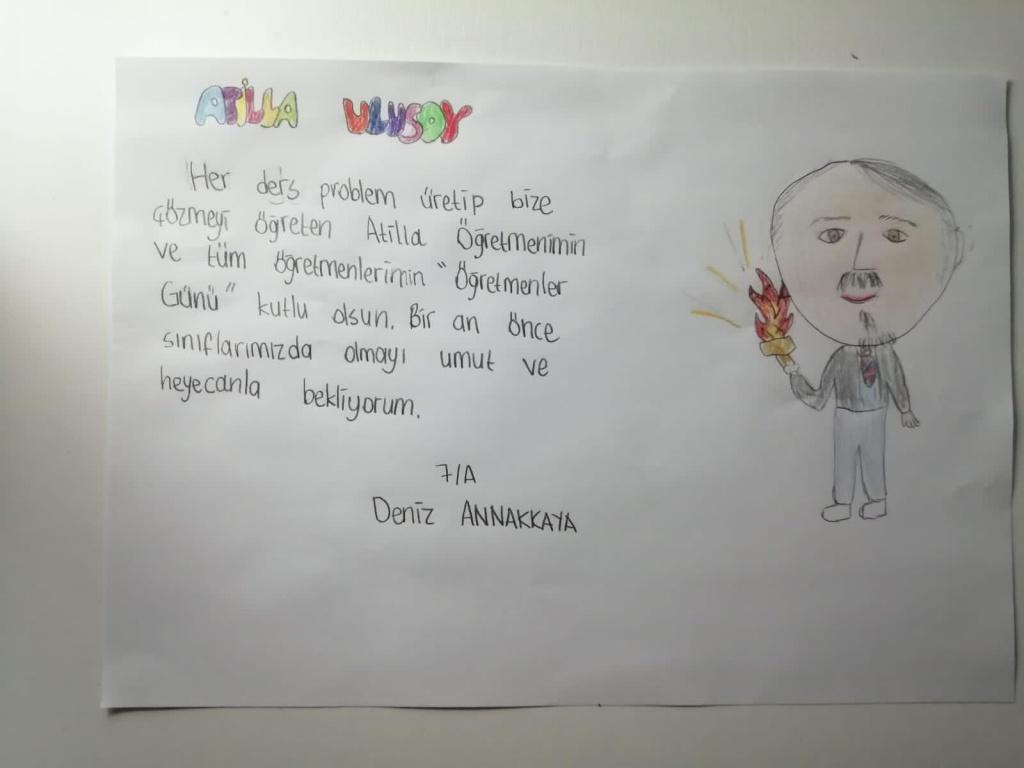 ATİLLA ULUSOY
Her ders problem üretip bize
çözmeyi öğreten Atilla Öğretmenimin
ve tüm öğretmenlerimin "Öğretmenler
Günü" kutlu olsun. Bir an önce
sınıflarımızda olmayı umut ve
heyecanla bekliyorum.
7/A
Deniz ANNAKKAYA